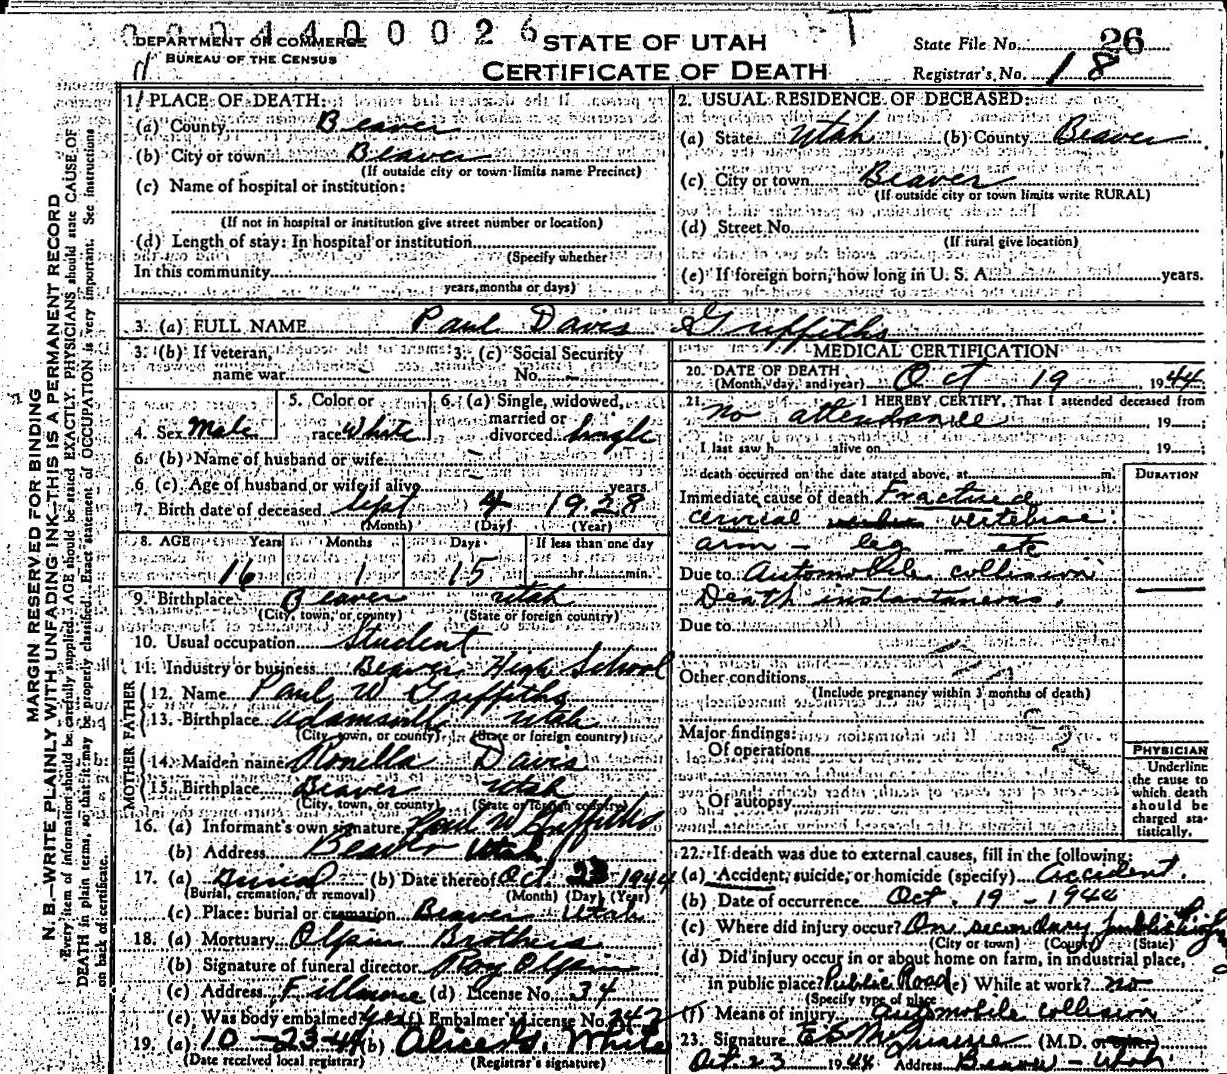 0 0 0 4 4 0 0 0 2 6
DEPARTMENT OF COMMERCE
BUREAU OF THE CENSUS
STATE OF UTAH
CERTIFICATE OF DEATH
State File No. 26
Registrar's No. 18
MARGIN RESERVED FOR BINDING
N. B.—WRITE PLAINLY, WITH UNFADING INK—THIS IS A PERMANENT RECORD
Every item of information should be carefully supplied. AGE should be stated EXACTLY. PHYSICIANS should state CAUSE OF
DEATH in plain terms, so that it may be properly classified. Exact statement of OCCUPATION is very important. See instructions
on back of certificate.
1. PLACE OF DEATH:
(a) County Beaver
(b) City or town Beaver
(If outside city or town limits name Precinct)
(c) Name of hospital or institution:
(If not in hospital or institution give street number or location)
(d) Length of stay: In hospital or institution
(Specify whether
In this community
years, months or days)
2. USUAL RESIDENCE OF DECEASED:
(a) State Utah (b) County Beaver
(c) City or town Beaver
(If outside city or town limits write RURAL)
(d) Street No.
(If rural give location)
(e) If foreign born, how long in U. S. A. years.
3. (a) FULL NAME Paul Davis Griffiths
3. (b) If veteran, name war
3. (c) Social Security No. –
4. Sex Male
5. Color or race White
6. (a) Single, widowed, married or divorced Single
6. (b) Name of husband or wife –
6. (c) Age of husband or wife if alive – years
7. Birth date of deceased Sept 4 1928
(Month) (Day) (Year)
8. AGE Years Months Days If less than one day
16 1 15 hr. min.
9. Birthplace Beaver Utah
(City, town, or county) (State or foreign country)
10. Usual occupation Student
11. Industry or business Beaver High School
FATHER
12. Name Paul W Griffiths
13. Birthplace Adamsville Utah
(City, town, or county) (State or foreign country)
MOTHER
14. Maiden name Ronilla Davis
15. Birthplace Beaver Utah
(City, town, or county) (State or foreign country)
16. (a) Informant's own signature Paul W Griffiths
(b) Address Beaver Utah
17. (a) Burial (b) Date thereof Oct 23 1944
(Burial, cremation, or removal) (Month) (Day) (Year)
(c) Place: burial or cremation Beaver Utah
18. (a) Mortuary Olpin Brothers
(b) Signature of funeral director Roy Olpin
(c) Address Fillmore (d) License No. 34
(e) Was body embalmed? yes (f) Embalmer's License No. 242
19. (a) 10-23-44 (b) Alice G. White
(Date received local registrar) (Registrar's signature)
MEDICAL CERTIFICATION
20. DATE OF DEATH
(Month, day, and year) Oct 19 1944
21. I HEREBY CERTIFY, That I attended deceased from
no attendance 19
I last saw h alive on 19
death occurred on the date stated above, at m.
DURATION
Immediate cause of death Fractured
cervical vertebrae
arm – leg – etc
Due to Automobile collision
Death instantaneous.
Due to
Other conditions
(Include pregnancy within 3 months of death)
Major findings:
Of operations
Of autopsy
PHYSICIAN
Underline
the cause to
which death
should be
charged sta-
tistically.
22. If death was due to external causes, fill in the following:
(a) Accident, suicide, or homicide (specify) Accident.
(b) Date of occurrence Oct. 19 – 1944
(c) Where did injury occur? On secondary public
(City or town) (County) (State)
(d) Did injury occur in or about home on farm, in industrial place,
in public place? Public Road (e) While at work? no
(Specify type of place
(f) Means of injury Automobile collision
23. Signature (M.D. or other)
Oct. 23 1944 Address Beaver – Utah